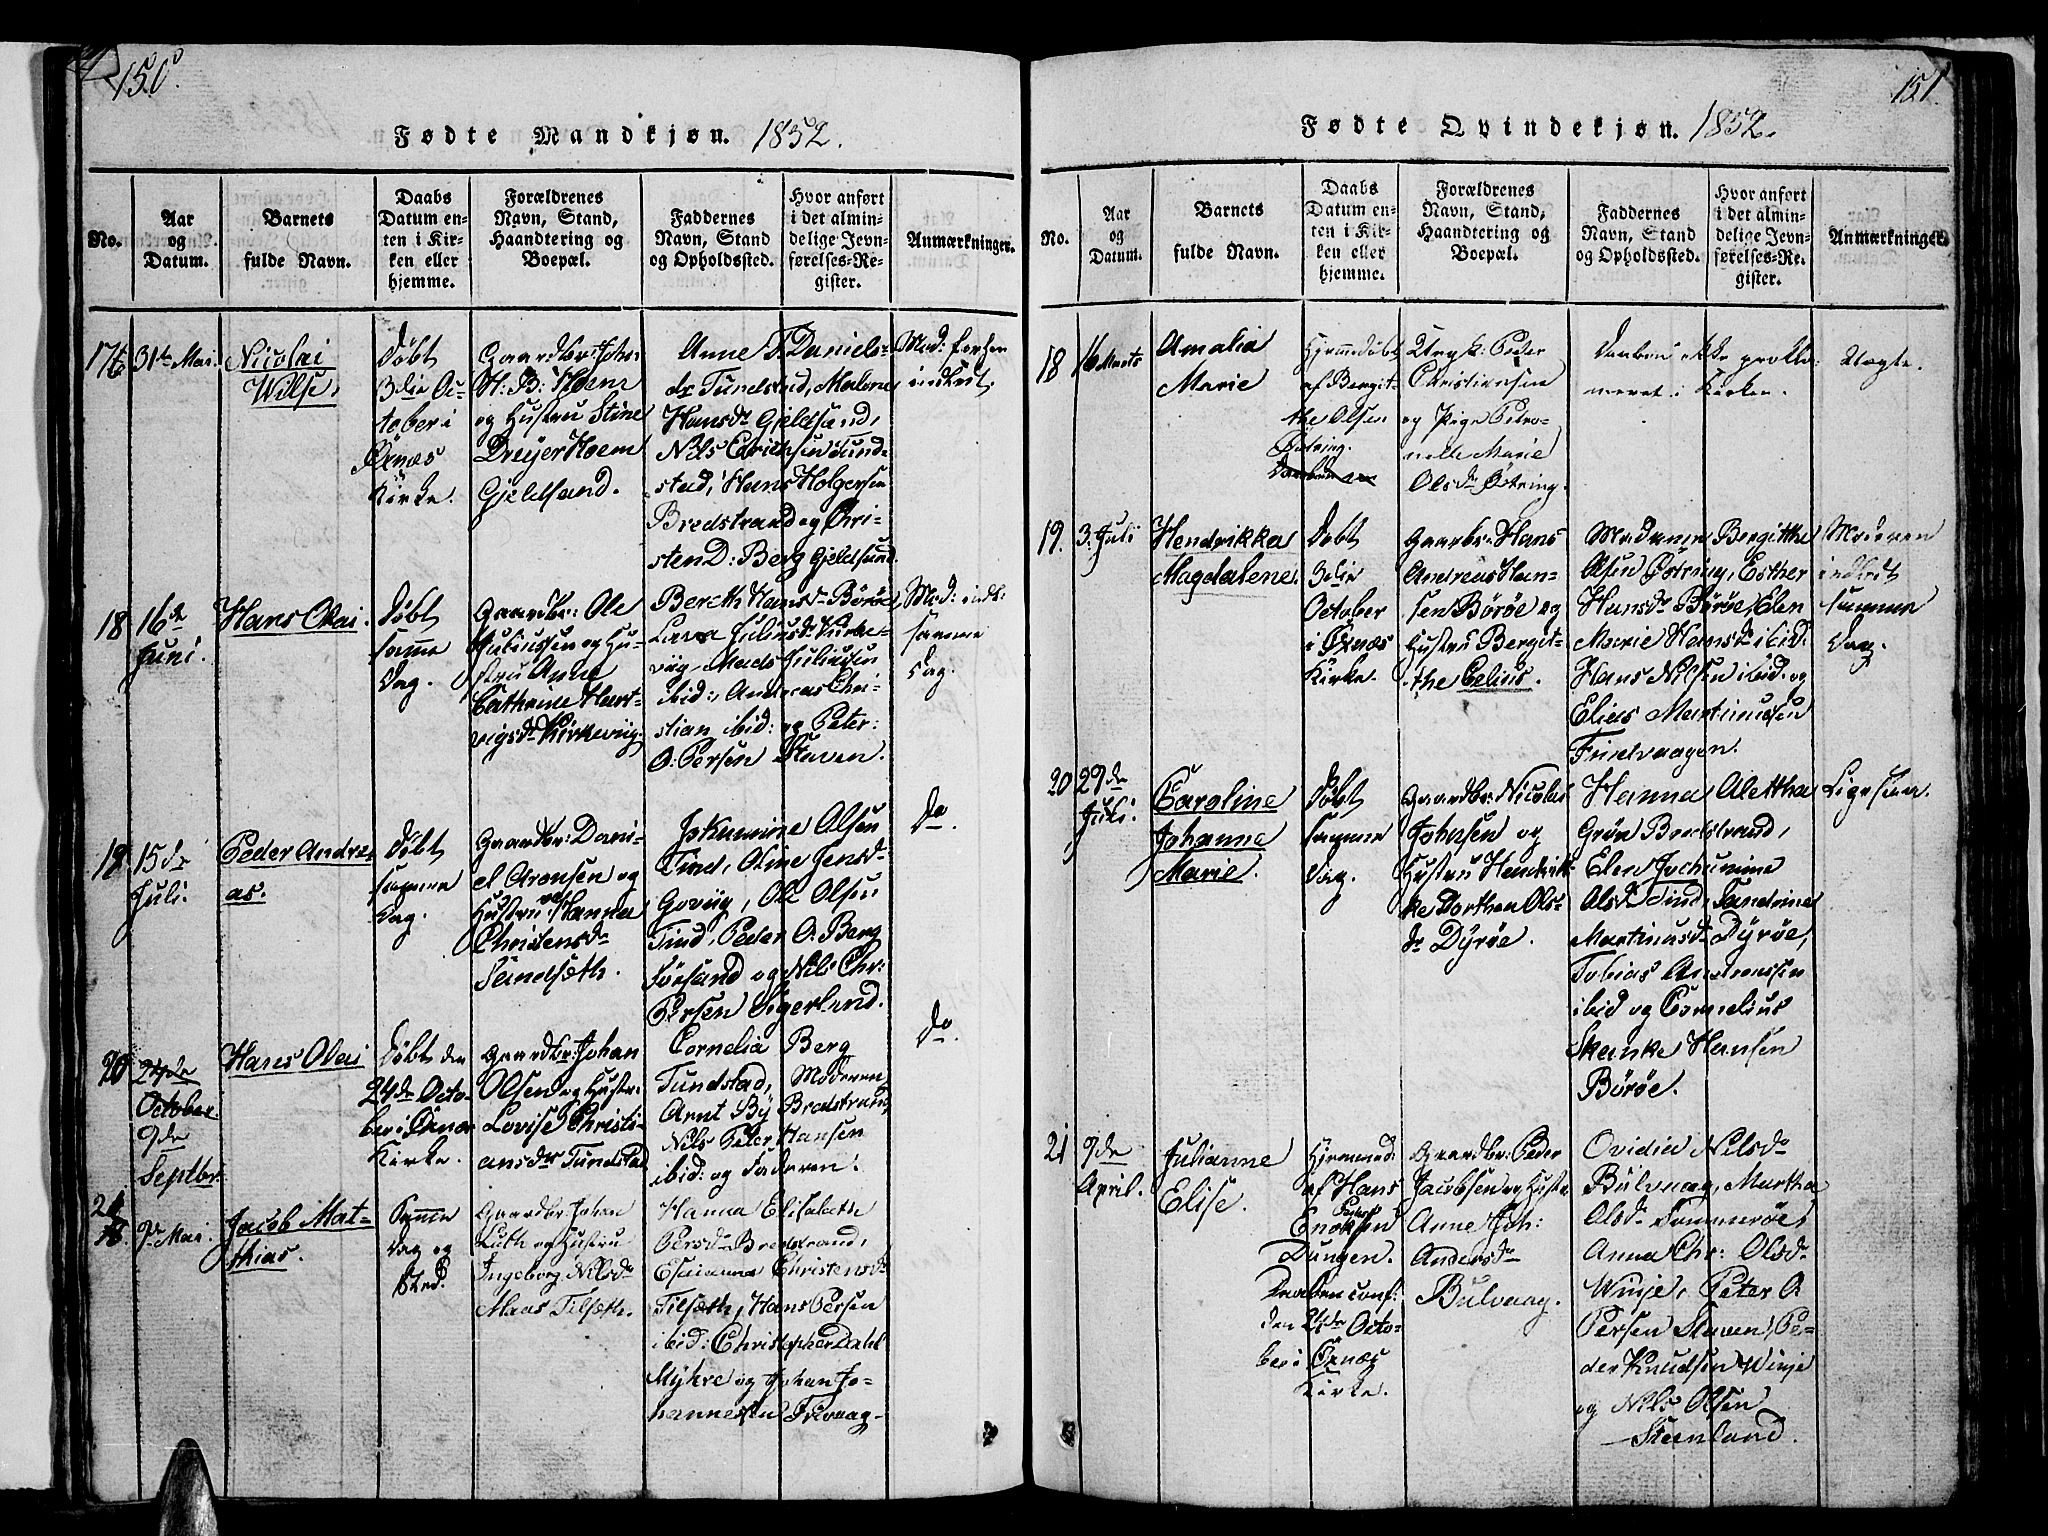 150.
Fødte Mandkjøn. 1852.
No.
Aar
og
Datum.
Barnets
fulde Navn.
Daabs
Datum en-
ten i Kir-
ken eller
hjemme.
Forældrenes
Navn, Stand,
Haandtering og
Boepæl.
Faddernes
Navn, Stand
og Opholdssted.
Hvor anført
i det almin-
delige Jevn-
førelses-Re-
gister.
Anmærkninger.
17
31te Mai.
Nicolai
Wilse.
Døbt
3die Oc-
tober i
Øxnæs
Kirke.
Gaardbr: Joh:
H. B: Hoem
og Hustru Stine
Dreyer Hoem
Gjeldsand.
Anne T. Daniels-
dr Tundstad, Malene
Hansdr Gjeldsand,
Nils Edrik sen Tund-
stad, Hans Holgersen
Bredstrand og Chri-
sten D: Berg Gjeldsand.
Mod: forhen
indledt.
18
16de
Juni.
Hans Olai.
Døbt
samme
Dag.
Gaardbr: Ole
Juliussen og Hu-
stru Anne
Cathrine Hart-
vigsdr Kirkeviig.
Bereth Hansdr Børøe,
Lava Juliusdr Kirke-
viig, Mads Juliussen
ibid:, Andreas Chri-
stian ibid: og Peter
O. Persen Staven.
Mod: indl:
samme
Dag.
18
15de
Juli.
Peder Andre-
as.
Døbt
samme
Dag.
Gaardbr: Dani-
el Aronsen og
Hustru Hanna
Christensdr
Sandsæth.
Jokumine Olsen
Tind, Oline Jensdr
Goviig, Ole Olsen
Tind, Peder O. Berg
Førsand og Nils Chr:
Persen Sigerland.
Do.
20
24de
October
9de
Septbr.
Hans Olai
Døbt den
24de Octo-
ber i Øxnæs
Kirke.
Gaardbr: Johan
Olsen og Hustr:
Lovise Christi-
ansdr Tundstad
Cornelia Berg
Tundstad, Moderen,
Arnt By Bredstrand,
Nils Peter Hansen
ibid: og Faderen.
Do.
21
9de Mai.
Jacob Mat-
thias.
Samme
Dag og
Sted.
Gaardbr: Johan
Luth og Hustru
Ingeborg Nilsdr
Maas Tilsæth.
Hanna Elisabeth
Persdr Bredstrand,
Esaianna Christensdr
Tilsæth, Hans Persen
ibid: Christopher Dahl
Myhre og Johan Jo-
hannessen Frivaag.
151.
Fødte Qvindekjøn. 1852.
No.
Aar
og
Datum.
Barnets
fulde Navn.
Daabs
Datum en-
ten i Kir-
ken eller
hjemme.
Forældrenes
Navn, Stand,
Haandtering og
Boepæl.
Faddernes
Navn, Stand
og Opholdssted.
Hvor anført
i det almin-
delige Jevn-
førelses-Re-
gister.
Anmærkninger.
18
16 Marts
Amalia
Marie
Hjemmedøbt
af Bergit-
the Olsen
Østring.
Daaben
Ungk: Peder
Christiansen
og Pige Petro-
nelle Marie
Olsdr Østring.
Daaben ikke prokla-
meret i Kirken.
Uægte.
19.
3. Juli
Hendrikka
Magdalene.
Døbt
3die
October
i Øxnæs
Kirke.
Gaardbr: Hans
Andreas Han-
sen Børøe og
Hustru Bergit-
the Celius.
Madamen Bergitthe
Olsen Østring, Esther
Hansdr Børøe, Elen
Marie Hansdr ibid:
Hans Nilsen ibid. og
Elias Martinussen
Finvaagen.
Moderen
indledt
samme
Dag.
20
29de
Juli.
Caroline
Johanna
Marie.
Døbt
samme
Dag.
Gaardbr: Nicolai
Johnsen og
Hustru Hendrik-
ke Dorthea Ols-
dr Dyrøe.
Hanna Alettha
Grøn Bredstrand,
Elen Jochumine
Olsdr Tind, Tandrine
Martinusdr Dyrøe,
Tobias Andreassen
ibid og Cornelius
Skanke Hansen
Børøe.
Ligesaa.
21
9de
April.
Julianne
Elise.
Hjemmed:
af Hans
Peder
Enoksen
Dungen.
Daaben conf:
den 24de Octo-
ber i Øxnæs
Kirke.
Gaardbr: Peder
Jacobsen og Hustr
Anne Joh:
Andersdr
Bulvaag.
Ovidia Nilsdr
Bulvaag, Martha
Olsdr Sommerøe,
Anna Chr: Olsdr
Winje, Peter O.
Persen Staven, Pe-
der Knudsen Winje
og Nils Olsen
Steenland.